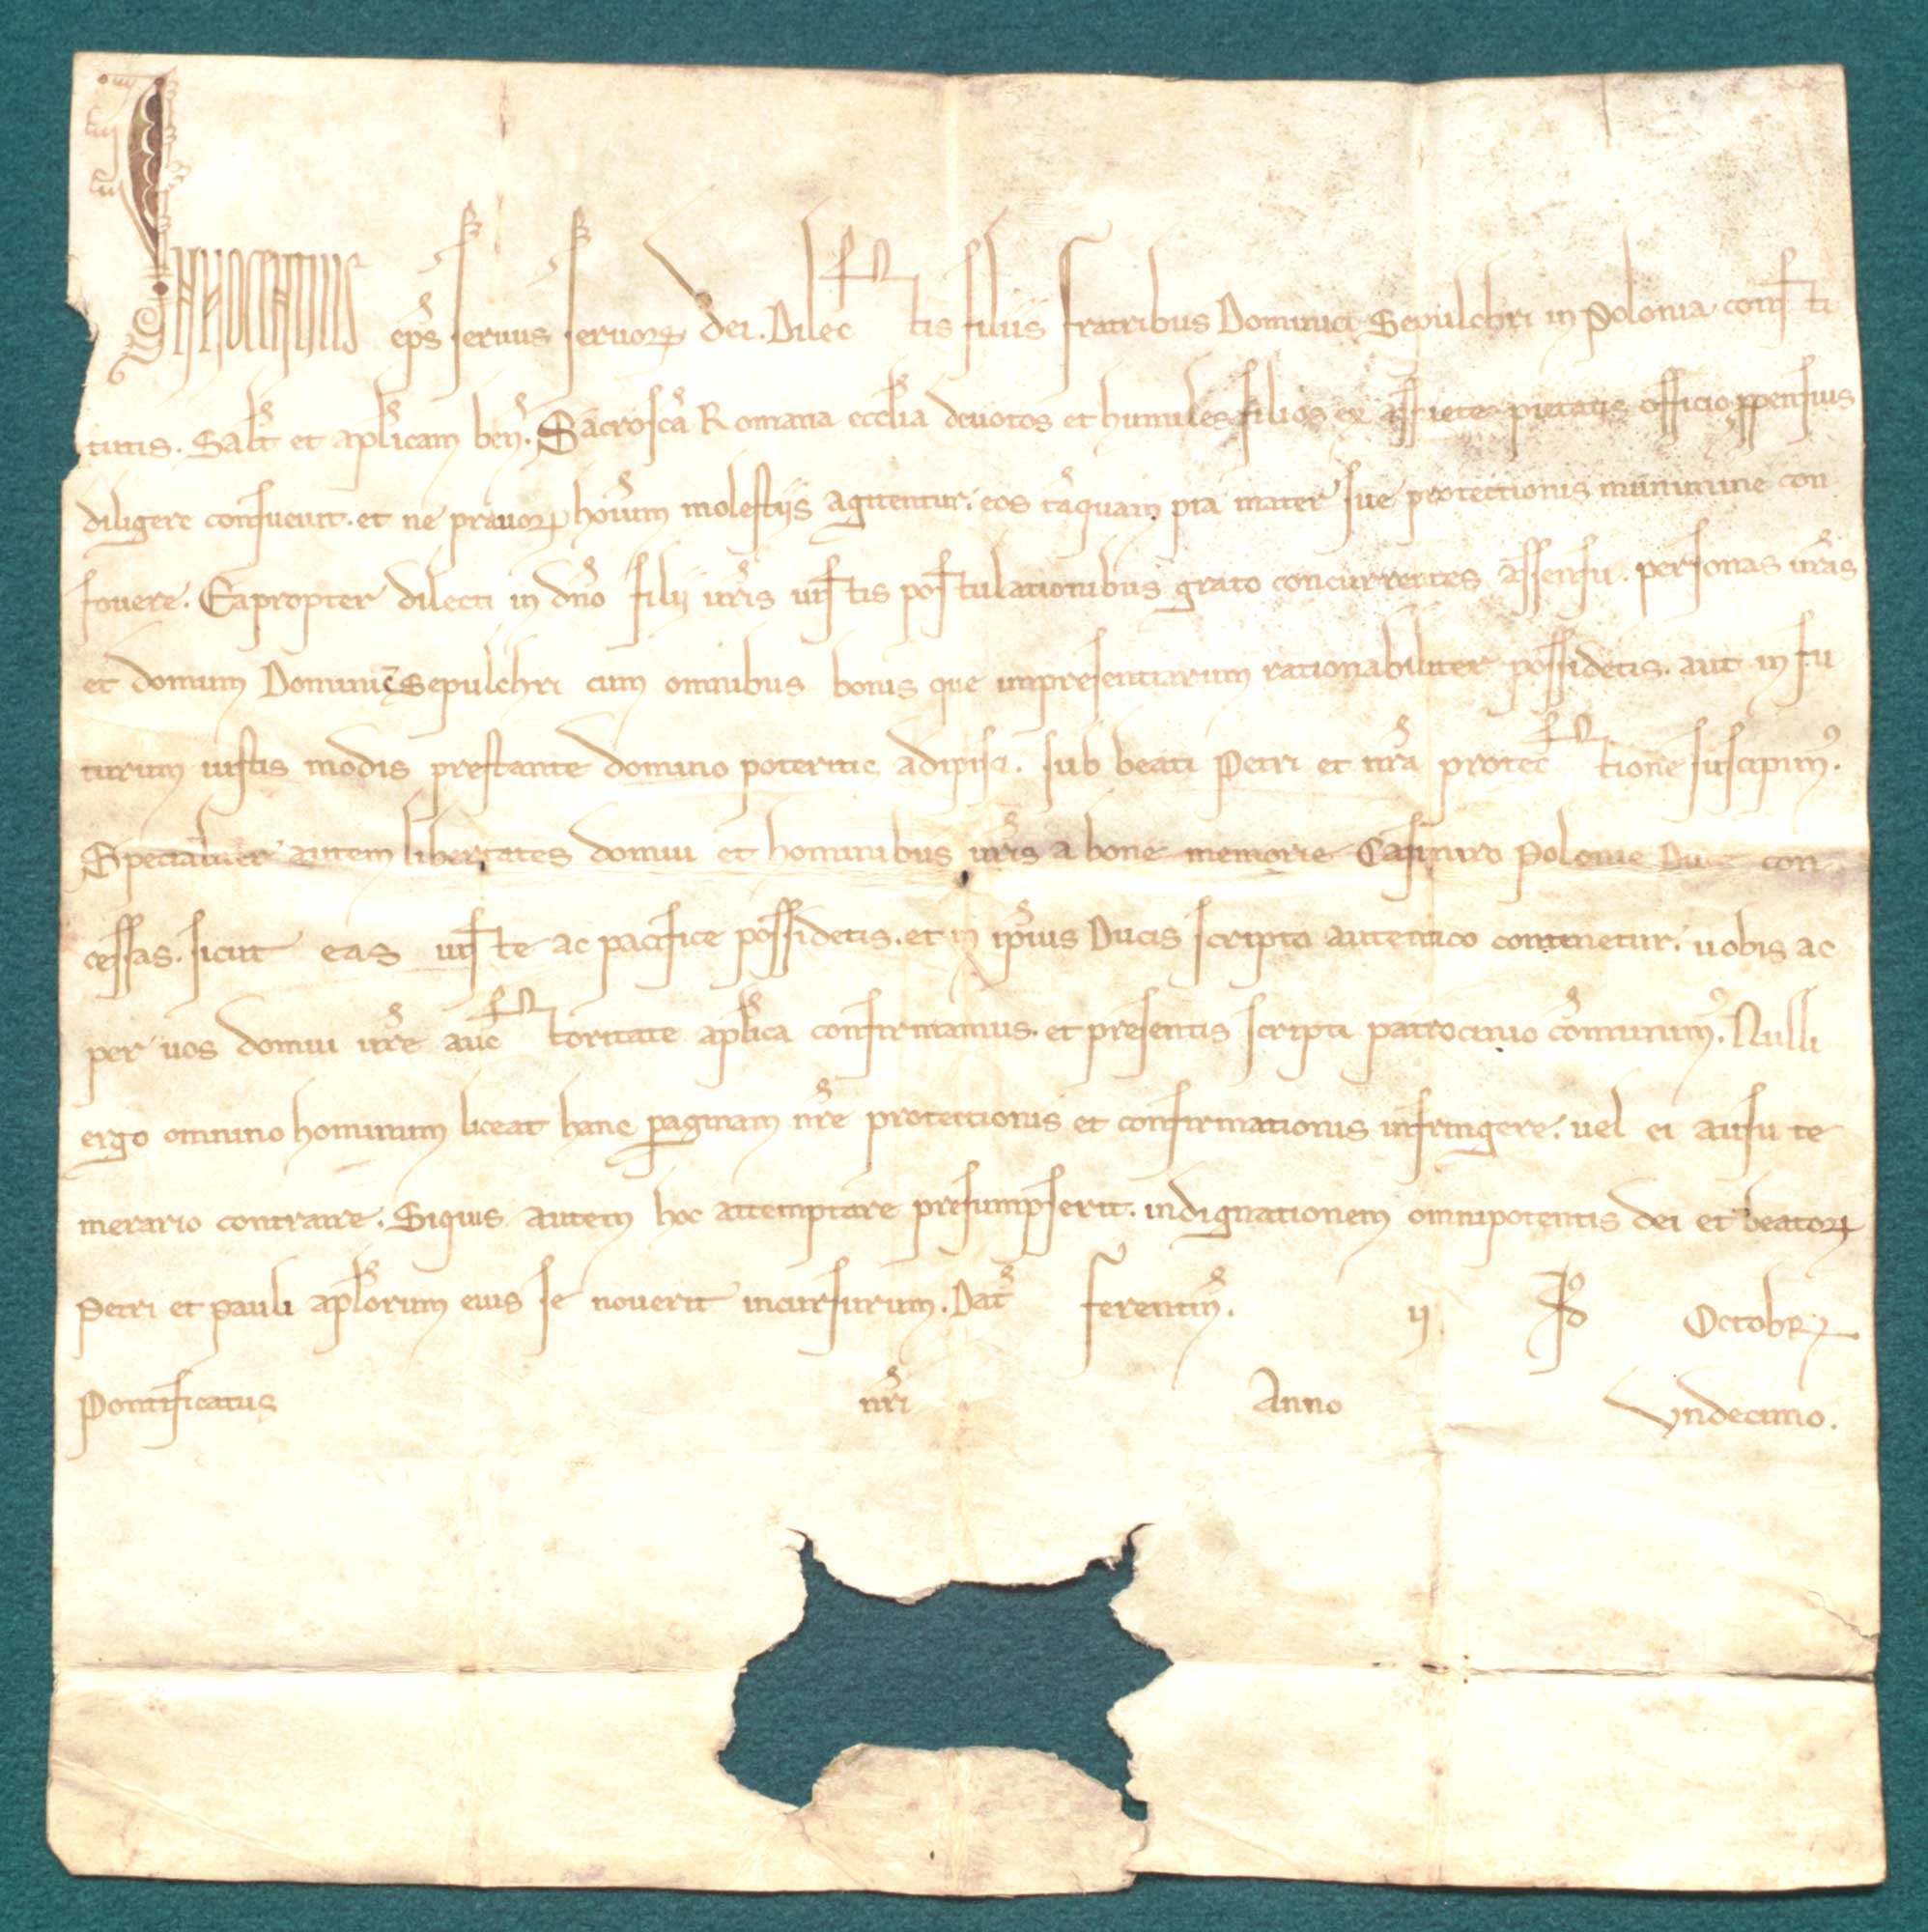 INNOCENTIUS ep̄s seruus seruoꝝ dei. Dilectis filiis fratribus Dominici Sepulchri in Polonia consti
tutis. Salt̄ et aplicam ben̄. Sacrosc̄a Romana eccl̄ia deuotos et humiles filios ex assuete pietatis officio ꝓpensius
diligere consueuit. et ne prauoꝝ hoīum molestiis agitentur. eos tāquam pia mater sue protectionis munimine con
fouere. Eapropter dilecti in dn̄o filii ur̄is iustis postulationibus grato concurrentes assensu. personas ur̄as
et domum Dominici Sepulchri cum omnibus bonis que impresentiarum rationabiliter possidetis. aut in fu
turum iustis modis prestante domino poteritis adipisci. sub beati Petri et nr̄a protectione suscipimꝰ.
Specialiter autem libertates domui et hominibus ur̄is a bone memorie Casimiro Polonie Du con
cessas. sicut eas iuste ac pacifice possidetis. et in ip̄ius Ducis scripto autentico continetur. uobis ac
per uos domui ur̄e auctoritate aplica confirmamus. et presentis scripti patrocinio cōmunimꝰ. Nulli
ergo omnino hominum liceat hanc paginam nr̄e protectionis et confirmationis infringere. uel ei ausu te
merario contraire. Siquis autem hoc attemptare presumpserit. indignationem omnipotentis dei et beatoꝝ
Petri et Pauli aplorum eius se nouerit incursurum. Dat̄ Ferentin̄. ii Id Octobꝝ
Pontificatus nr̄i Anno Undecimo.